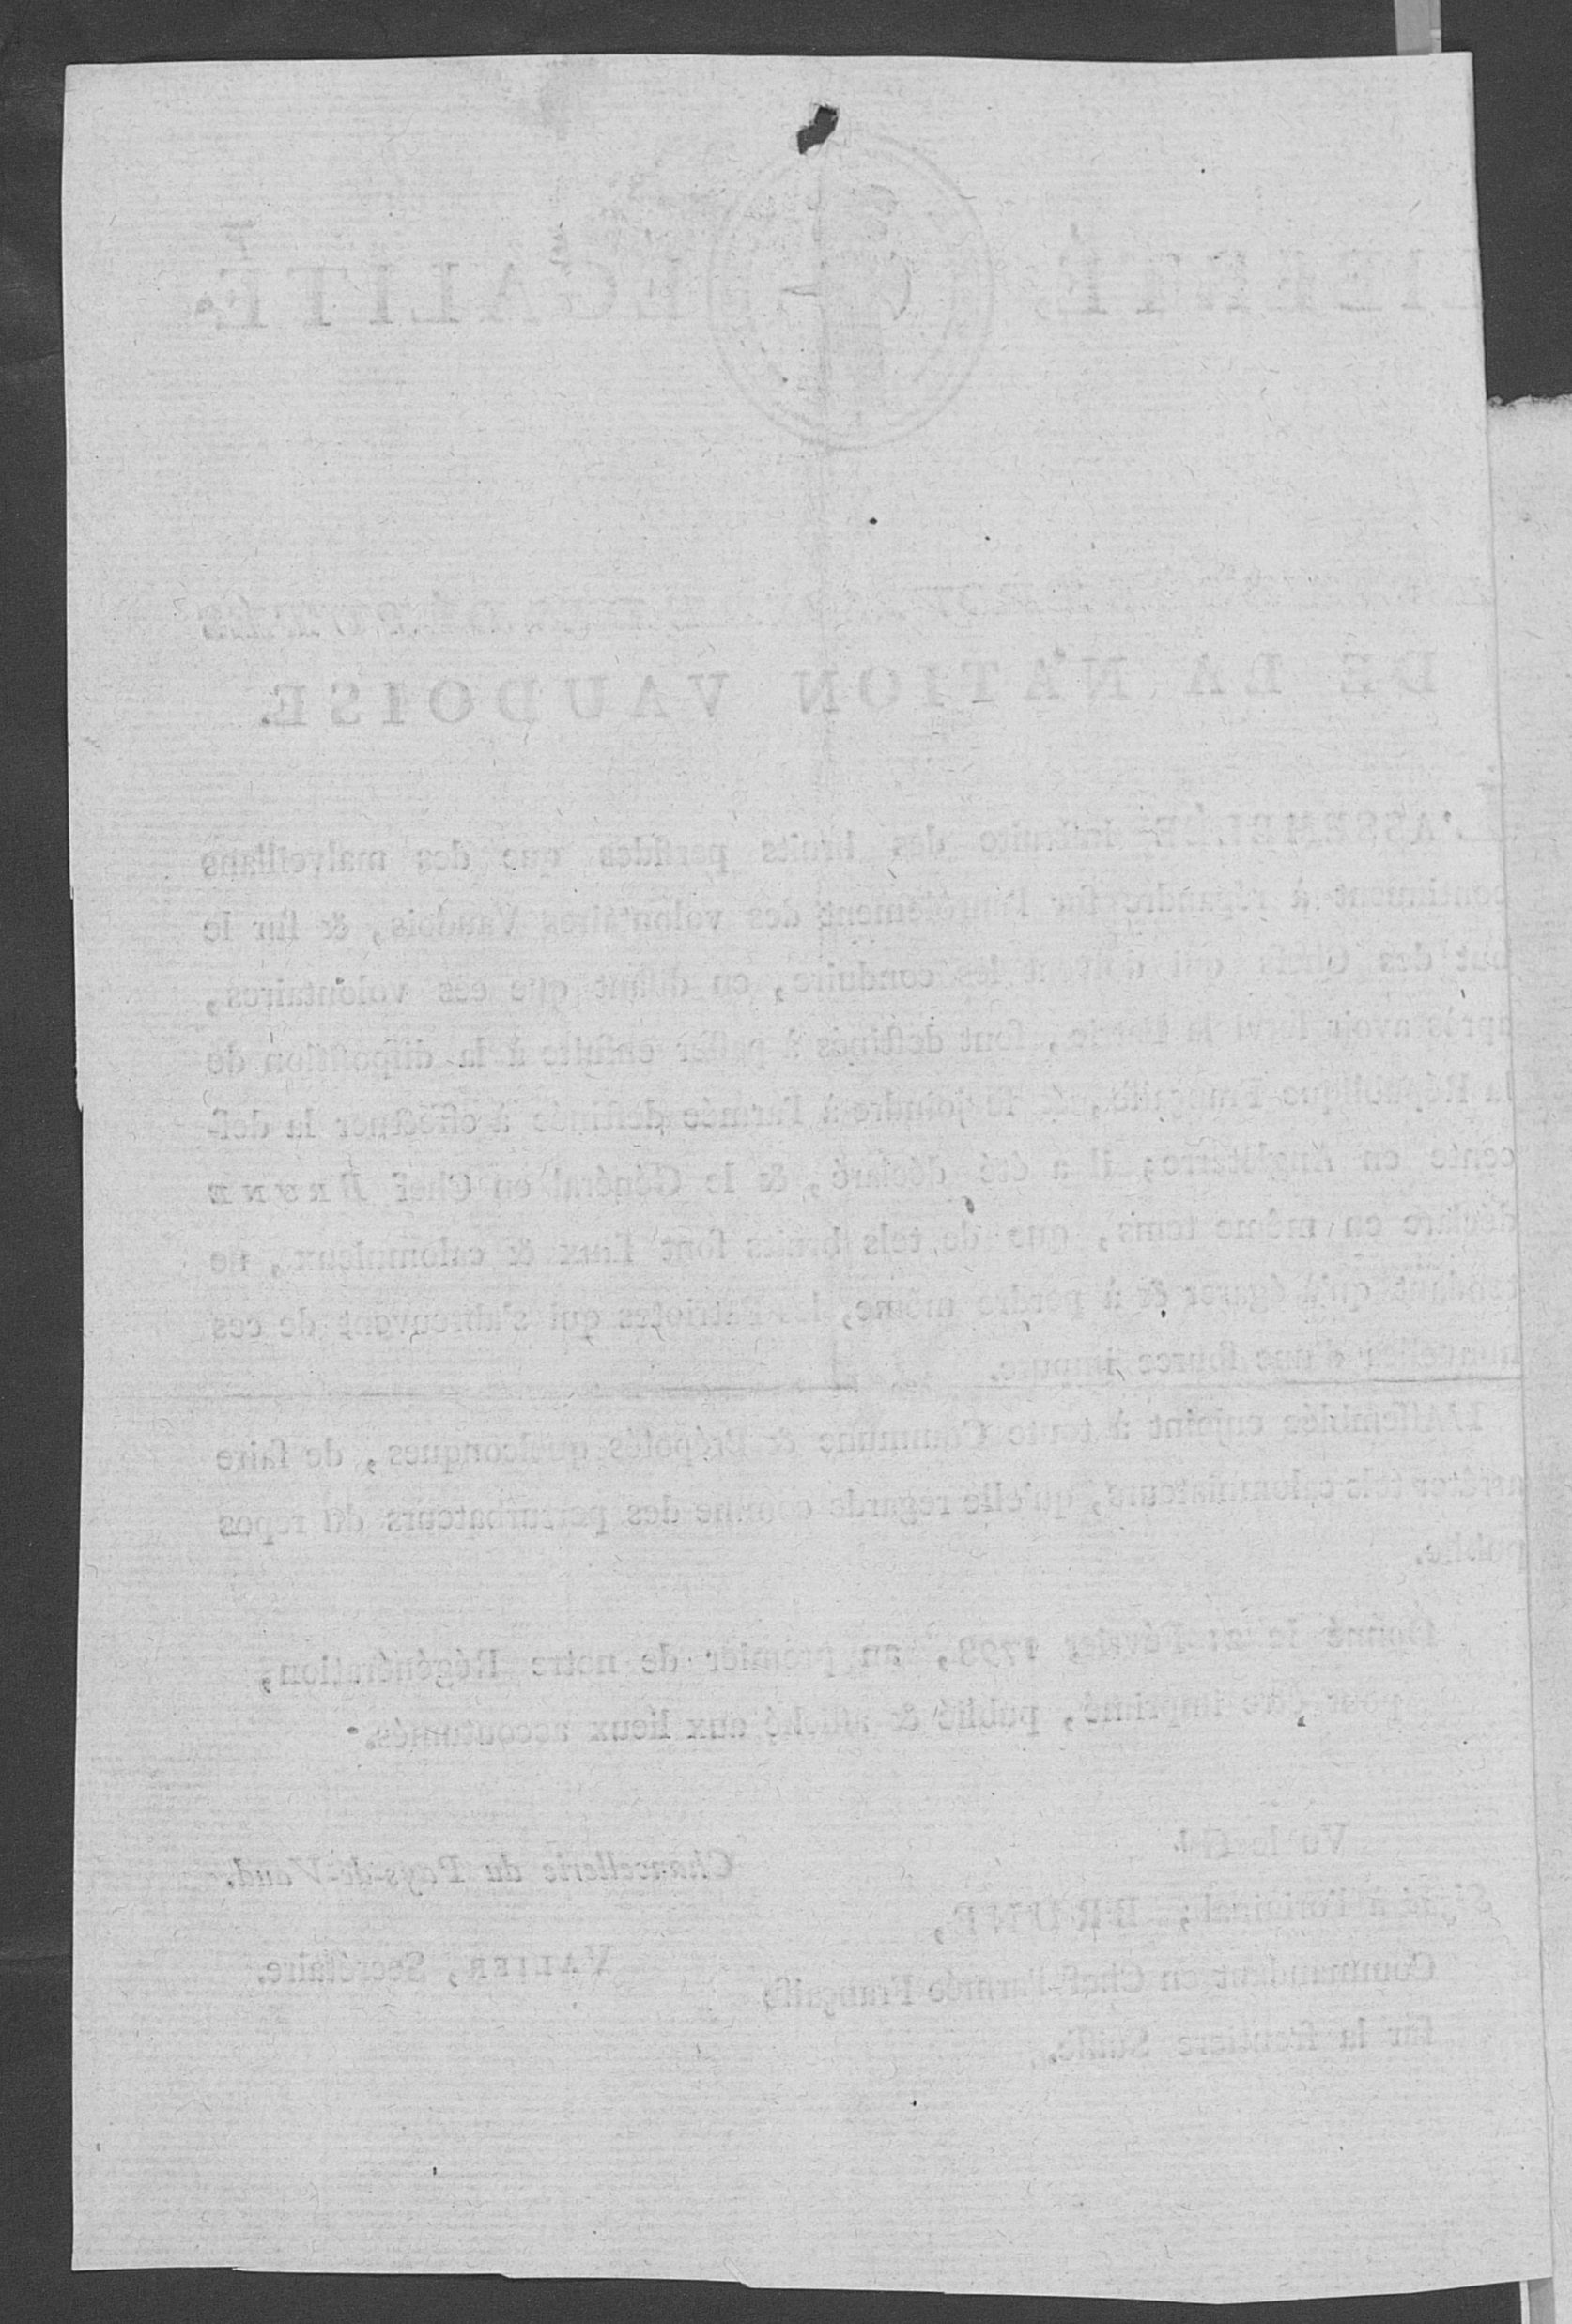 LIBERTÉ, ÉGALITÉ.
DE LA NATION VAUDOISE.
L'ASSEMBLÉE instruite des bruits perfides que des malveillans
continuent à répandre sur l'armement des volontaires Vaudois, & sur le
but des Chefs qui doivent les conduire, en disant que ces volontaires,
après avoir servi la Patrie, sont destinés à passer ensuite à la disposition de
la République Française, & se joindre à l'armée destinée à effectuer la des-
cente en Angleterre; il a été déclaré, & le Général en Chef BRUNE
déclare en même tems, que de tels bruits sont faux & calomnieux, ne
tendant qu'à égarer & à perdre même, les Patriotes qui s'abreuvent de ces
nouvelles d'une source impure.
L'Assemblée enjoint à toute Commune & Préposés quelconques, de faire
arrêter tels calomniateurs, qu'elle regarde comme des perturbateurs du repos
public.
Donné le 21 Février 1798, an premier de notre Régénération,
pour être imprimé, publié & affiché aux lieux accoutumés.
Vu le
Signé à l'original; BRUNE,
Commandant en Chef l'armée Française
sur la frontiere Suisse.
Chancellerie du Pays-de-Vaud.
VALIER, Secrétaire.